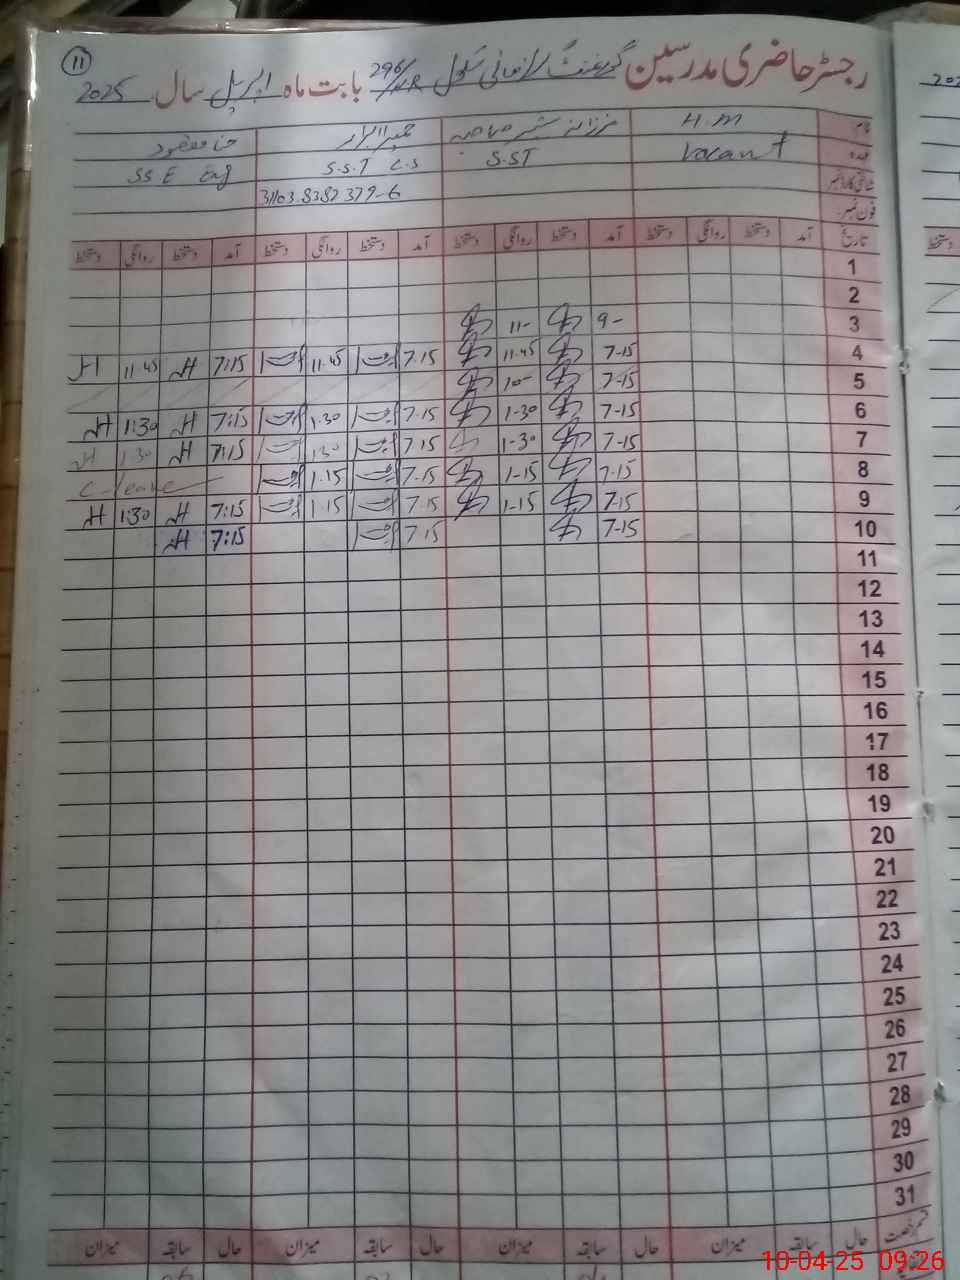 11
رجسٹر حاضری مدرسین گورنمنٹ سکول 296/ بابت ماہ اپریل سال 2025
نام H.M
عہدہ Vacant S.ST S.S.T C.S SSE Eng
شناختی کارڈ نمبر 31103.8382379-6
فون نمبر
تاریخ آمد دستخط روانگی دستخط آمد دستخط روانگی دستخط آمد دستخط روانگی دستخط آمد دستخط روانگی دستخط
1
2
3 9- 11-
4 7-15 11.45 7.15 11.45 7:15 11.45
5 7-15 10-
6 7-15 1-30 7.15 1.30 7:15 1:30
7 7-15 1-30 7.15 1.30 7:15 1.30
8 7.15 1-15 7.15 1.15 C-leave
9 7-15 1-15 7.15 1.15 7:15 1:30
10 7-15 7.15 7:15
11
12
13
14
15
16
17
18
19
20
21
22
23
24
25
26
27
28
29
30
31
قسم رخصت حال سابقہ میزان حال سابقہ میزان حال سابقہ میزان حال سابقہ میزان
10-04-25 09:26